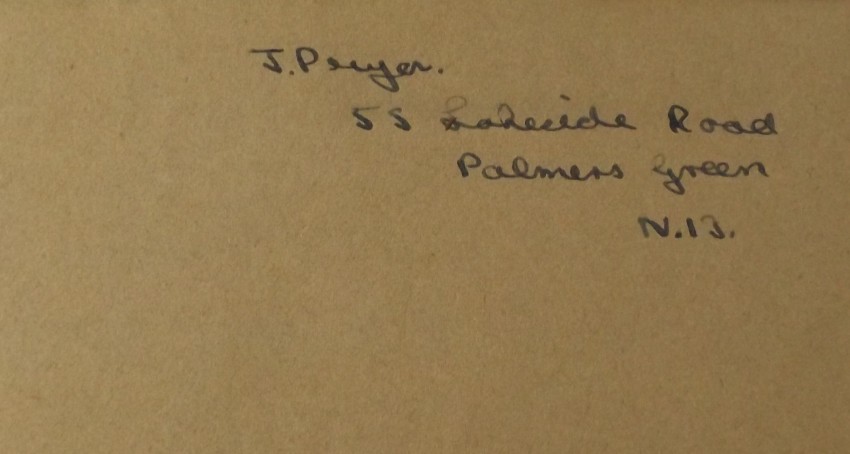 J. Pruyer.
55 Lakeside Road
Palmers Green
N.13.